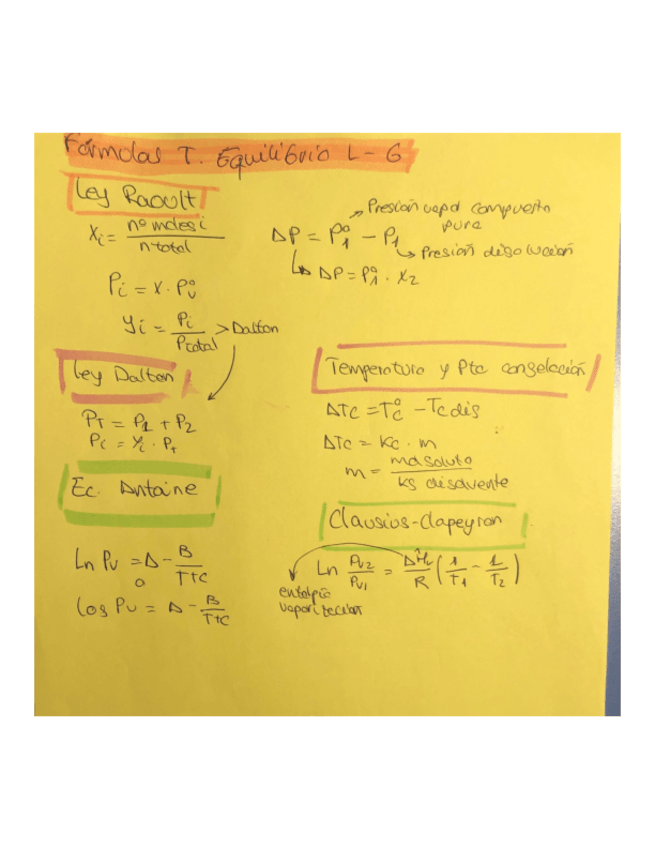 Fórmulas T. Equilibrio L-G
Ley Raoult
Xi = nº moles i / n total
Pi = X · Pvº
yi = Pi / Ptotal > Dalton
ΔP = P1º - P1
Presión vapor compuesto
puro
Presión disolución
ΔP = P1º · X2
Ley Dalton
PT = P1 + P2
Pi = yi · PT
Ec. Antoine
Ln Pv = A - B / T+C
o
Log Pv = A - B / T+C
Temperatura y Pto congelación
ΔTc = Tcº - Tc dis
ΔTc = Kc · m
m = mol soluto / kg disolvente
Clausius-Clapeyron
Ln Pv2 / Pv1 = ΔHv / R (1/T1 - 1/T2)
entalpía
vaporización